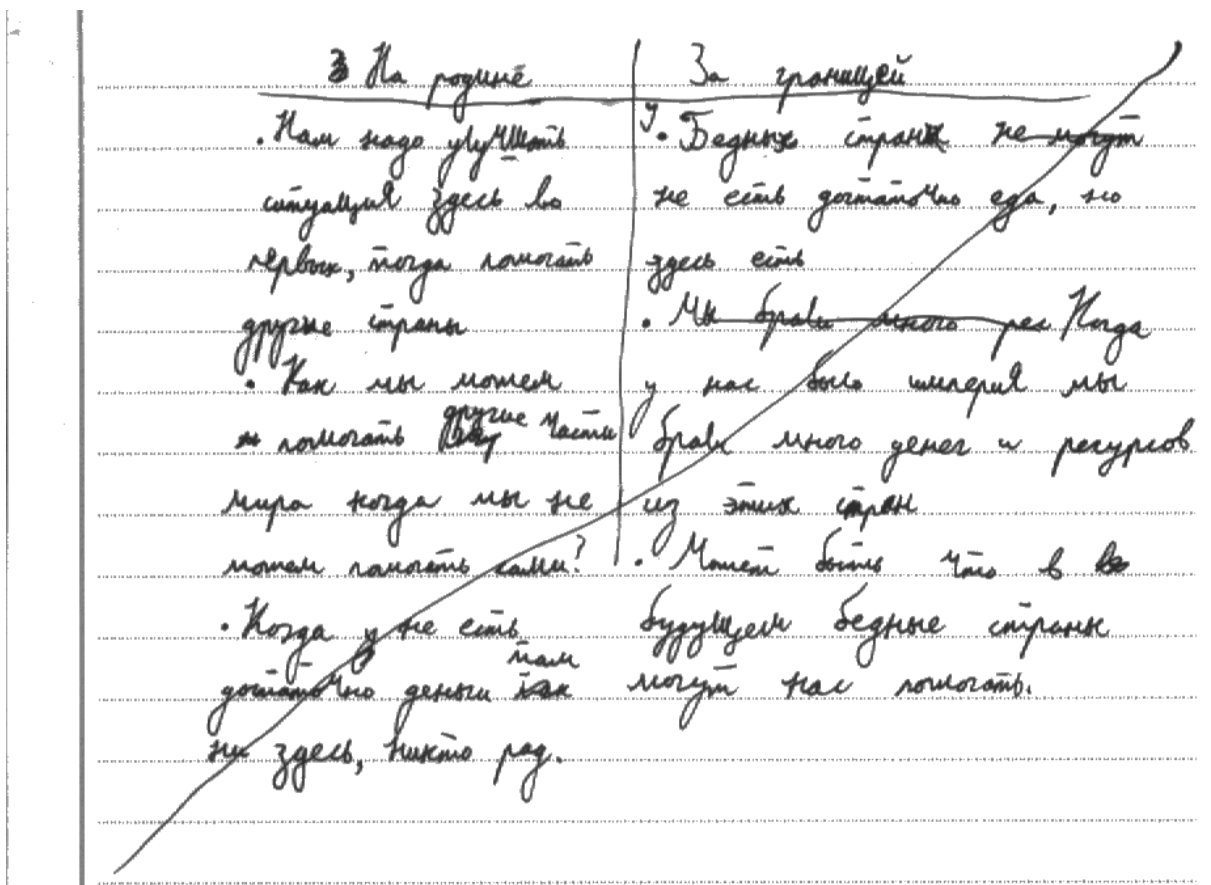 На родине
Нам надо улучшать
ситуация здесь во
первых, тогда помогать
другие страны
• Как мы можем
помогать другие части
мира когда мы не
можем помогать сами?
• Когда у не есть
достаточно деньги там
ни здесь, никто рад.
За границей
У • Бедных стран не могут
не есть достаточно еда, но
здесь есть
• Мы брали много рес Когда
у нас было империя мы
брали много денег и ресурсов
из этих стран
• Может быть что в
будущем бедные страны
могут нас помогать.